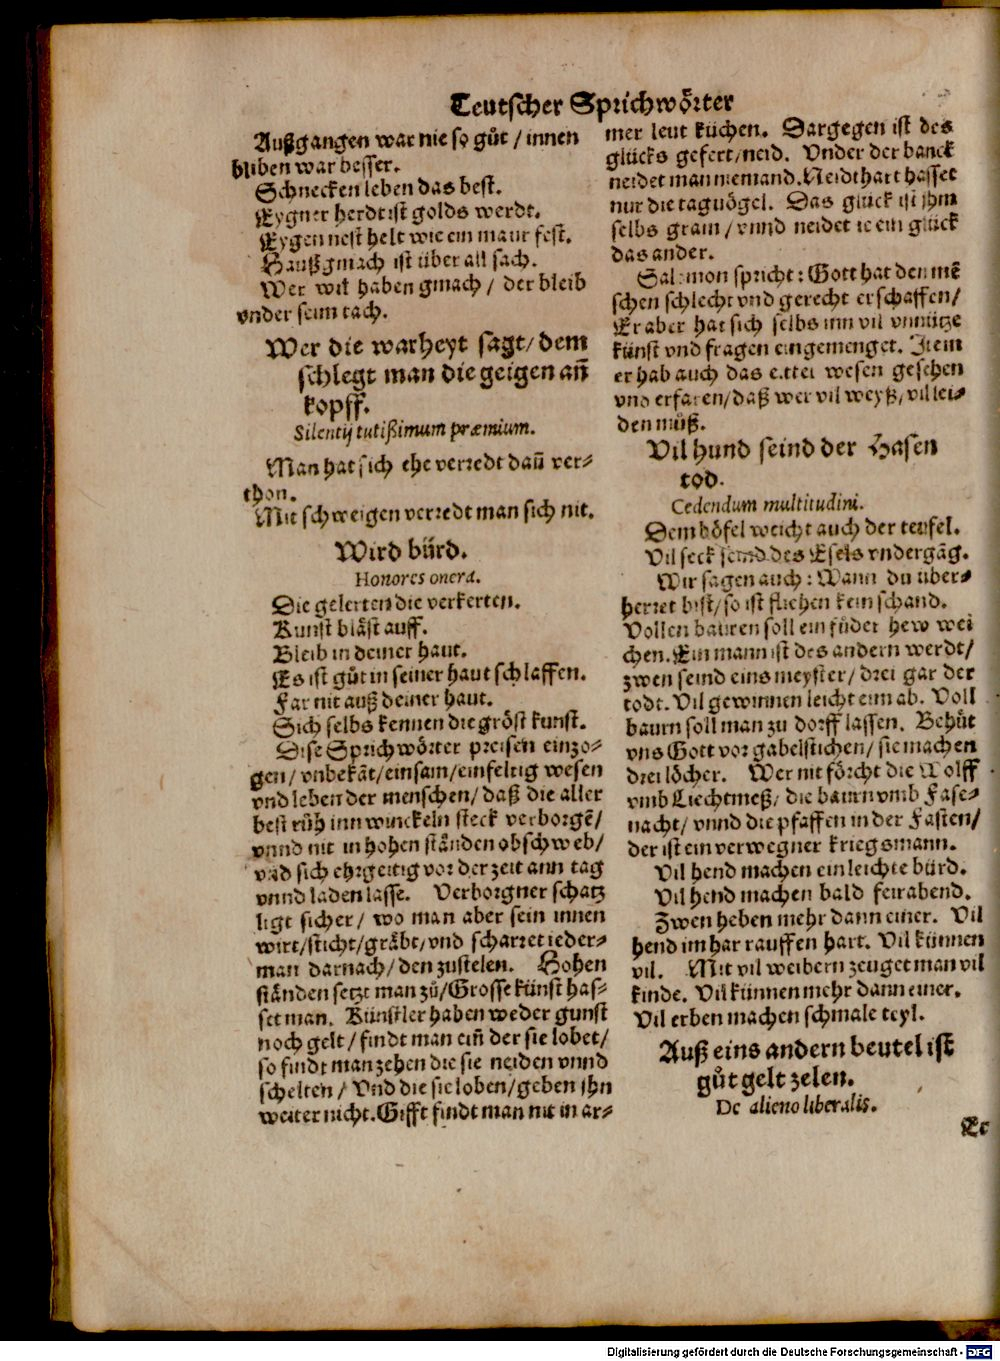 Teutscher Sprichwörter
Außgangen war nie so gůt / innen
bliben war besser.
Schnecken leben das best.
Eygner herdt ist golds werdt.
Eygen nest helt wie ein maur fest.
Haußgmach ist über all sach.
Wer wil haben gmach / der bleib
vnder seim tach.
Wer die warheyt sagt / dem
schlegt man die geigen an̄
kopff.
Silentij tutißimum præmium.
Man hat sich ehe verredt dañ ver⸗
thon.
Mit schweigen verredt man sich nit.
Wird bürd.
Honores onera.
Die gelerten die verkerten.
Kunst bläst auff.
Bleib in deiner haut.
Es ist gůt in seiner haut schlaffen.
Far nit auß deiner haut.
Sich selbs kennen die gröst kunst.
Dise Sprichwörter preisen einzo⸗
gen / vnbekāt / einsam / einfeltig wesen
vnd leben der menschen / daß die aller
best růh inn winckeln steck verborgē /
vnnd nit in hohen ständen obschweb /
vnd sich ehrgeitig vor der zeit ann tag
vnnd laden lasse. Verborgner schatz
ligt sicher / wo man aber sein innen
wirt / sticht / gräbt / vnd scharret ieder⸗
man darnach / den zustelen. Hohen
ständen setzt man zů / Grosse künst has⸗
set man. Künstler haben weder gunst
noch gelt / findt man ein̄ der sie lobet /
so findt man zehen die sie neiden vnnd
schelten / Vnd die sie loben / geben jhn
weiter nicht. Gifft findt man nit in ar⸗
mer leut küchen. Dargegen ist des
glücks gefert / neid. Vnder der banck
neidet man niemand. Neidthart hasset
nur die tagvögel. Das glück ist jhm
selbs gram / vnnd neidet ie ein glück
das ander.
Salomon spricht : Gott hat den mē
schen schlecht vnd gerecht erschaffen /
Er aber hat sich selbs inn vil vnnütze
künst vnd fragen eingemenget. Item
er hab auch das eittel wesen gesehen
vnd erfaren / daß wer vil weyß / vil lei⸗
den můß.
Vil hund seind der Hasen
tod.
Cedendum multitudini.
Dem böfel weicht auch der teufel.
Vil seck seind des Esels vndergāg.
Wir sagen auch : Wann du über⸗
herret bist / so ist fliehen kein schand.
Vollen bauren soll ein fůder hew wei
chen. Ein mann ist des andern werdt /
zwen seind eins meyster / drei gar der
todt. Vil gewinnen leicht eim ab. Voll
baurn soll man zu dorff lassen. Behůt
vns Gott vor gabelstichen / sie machen
drei löcher. Wer nit förcht die Wolff
vmb Liechtmeß / die baurn vmb Fase⸗
nacht / vnnd die pfaffen in der Fasten /
der ist ein verwegner kriegsmann.
Vil hend machen ein leichte bürd.
Vil hend machen bald feirabend.
Zwen heben mehr dann einer. Vil
hend im har rauffen hart. Vil künnen
vil. Mit vil weibern zeuget man vil
kinde. Vil künnen mehr dann einer.
Vil erben machen schmale teyl.
Auß eins andern beutel ist
gůt gelt zelen.
De alieno liberalis.
Er
Digitalisierung gefördert durch die Deutsche Forschungsgemeinschaft - DFG